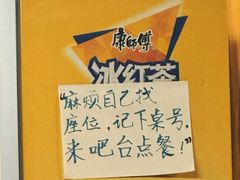 康師傅
冰红茶
“麻烦自己找
座位,记下桌号,
来吧台点餐!”